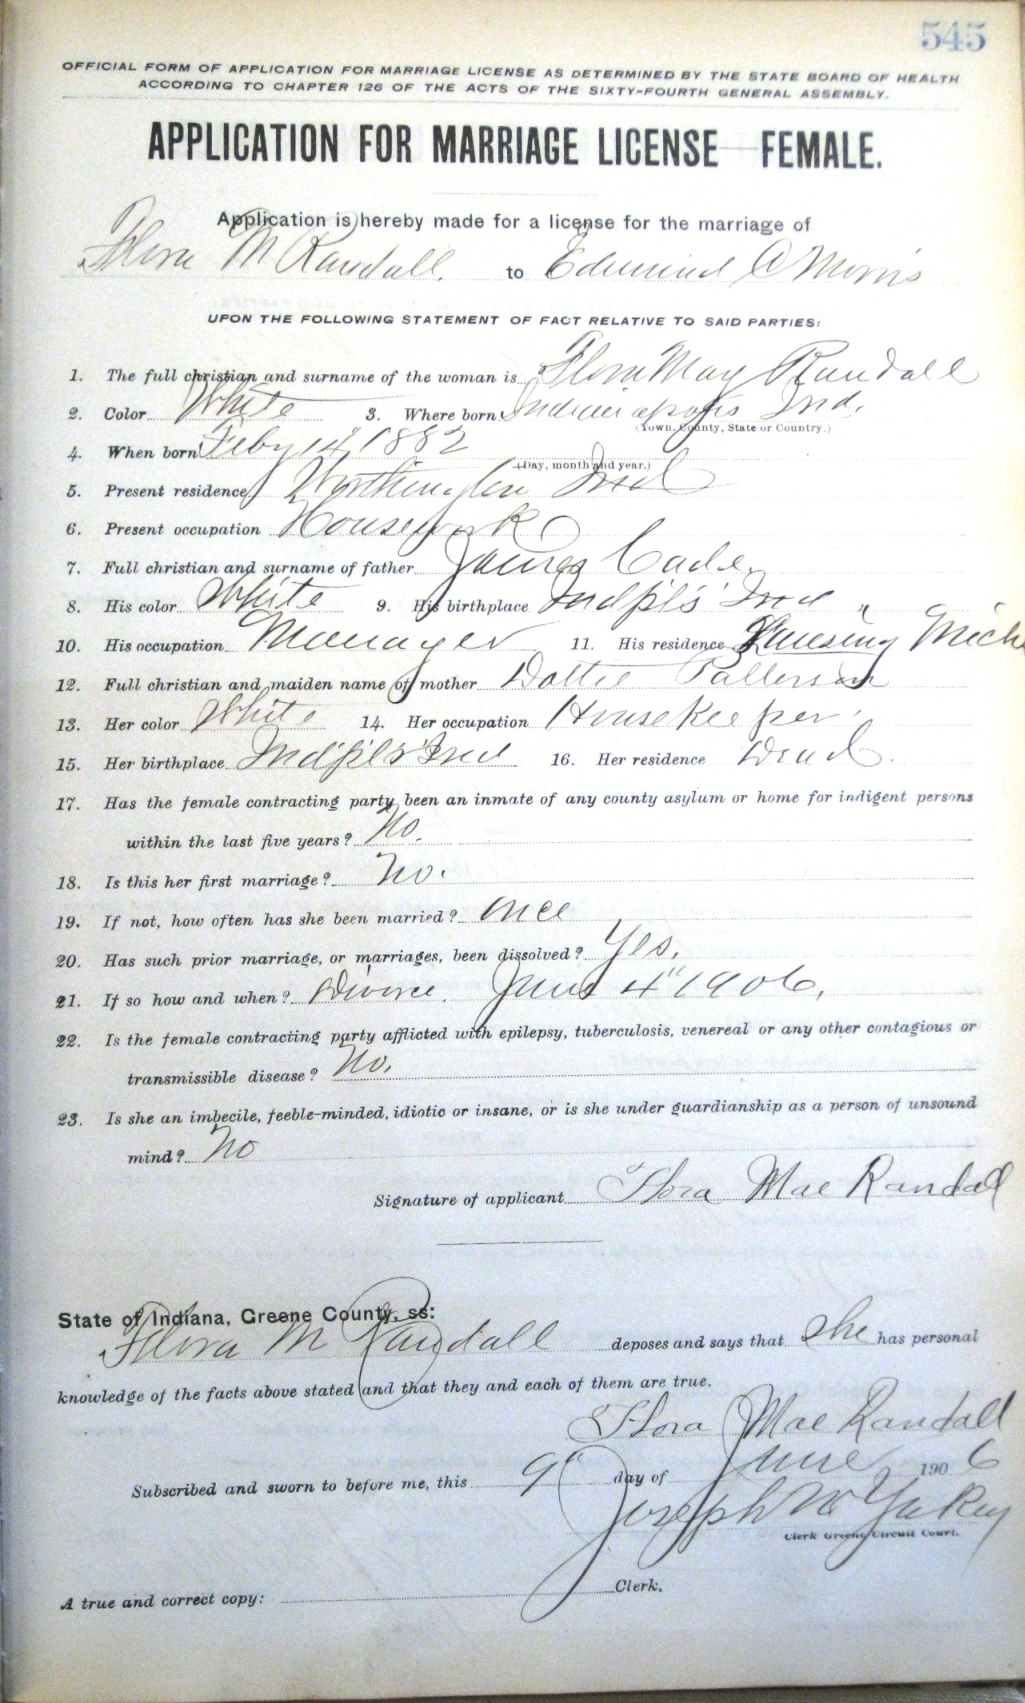 545
OFFICIAL FORM OF APPLICATION FOR MARRIAGE LICENSE AS DETERMINED BY THE STATE BOARD OF HEALTH
ACCORDING TO CHAPTER 126 OF THE ACTS OF THE SIXTY-FOURTH GENERAL ASSEMBLY.
APPLICATION FOR MARRIAGE LICENSE FEMALE.
Application is hereby made for a license for the marriage of
Flora M Randall. to Edmund C Morris
UPON THE FOLLOWING STATEMENT OF FACT RELATIVE TO SAID PARTIES:
1. The full christian and surname of the woman is Flora May Randall
2. Color White 3. Where born Indianapolis Ind.
(Town, County, State or Country.)
4. When born Feby 14 1882
(Day, month and year.)
5. Present residence Worthington Ind
6. Present occupation Housework
7. Full christian and surname of father James Cade.
8. His color White 9. His birthplace Indpl's Ind "
10. His occupation Manager 11. His residence Lansing Mich
12. Full christian and maiden name of mother Dottie Patterson
13. Her color White 14. Her occupation Housekeeper.
15. Her birthplace Indpl's Ind 16. Her residence Dead.
17. Has the female contracting party been an inmate of any county asylum or home for indigent persons
within the last five years? No.
18. Is this her first marriage? No.
19. If not, how often has she been married? Once
20. Has such prior marriage, or marriages, been dissolved? Yes.
21. If so how and when? Divorce. June 4" 1906.
22. Is the female contracting party afflicted with epilepsy, tuberculosis, venereal or any other contagious or
transmissible disease? No.
23. Is she an imbecile, feeble-minded, idiotic or insane, or is she under guardianship as a person of unsound
mind? No
Signature of applicant Flora Mae Randall
State of Indiana, Greene County, ss:
Flora M Randall deposes and says that she has personal
knowledge of the facts above stated and that they and each of them are true.
Flora Mae Randall
Subscribed and sworn to before me, this 9" day of June 1906
Joseph W Yakey
Clerk Greene Circuit Court.
A true and correct copy: Clerk.